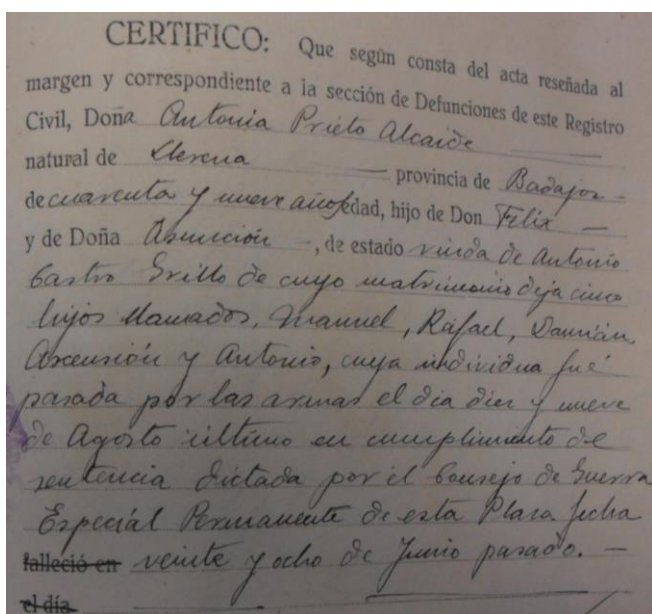 CERTIFICO: Que según consta del acta reseñada al
margen y correspondiente a la sección de Defunciones de este Registro
Civil, Doña Antonia Prieto Alcaide
natural de Llerena provincia de Badajoz -
de cuarenta y nueve años edad, hijo de Don Felix -
y de Doña Asunción -, de estado viuda de Antonio
Castro Grillo de cuyo matrimonio deja cinco
hijos llamados, Manuel, Rafael, Damián,
Ascensión y Antonio, cuya individua fué
pasada por las armas el día diez y nueve
de Agosto último en cumplimiento de
sentencia dictada por el Consejo de Guerra
Especial Permanente de esta Plaza fecha
falleció en veinte y ocho de Junio pasado. -
el día